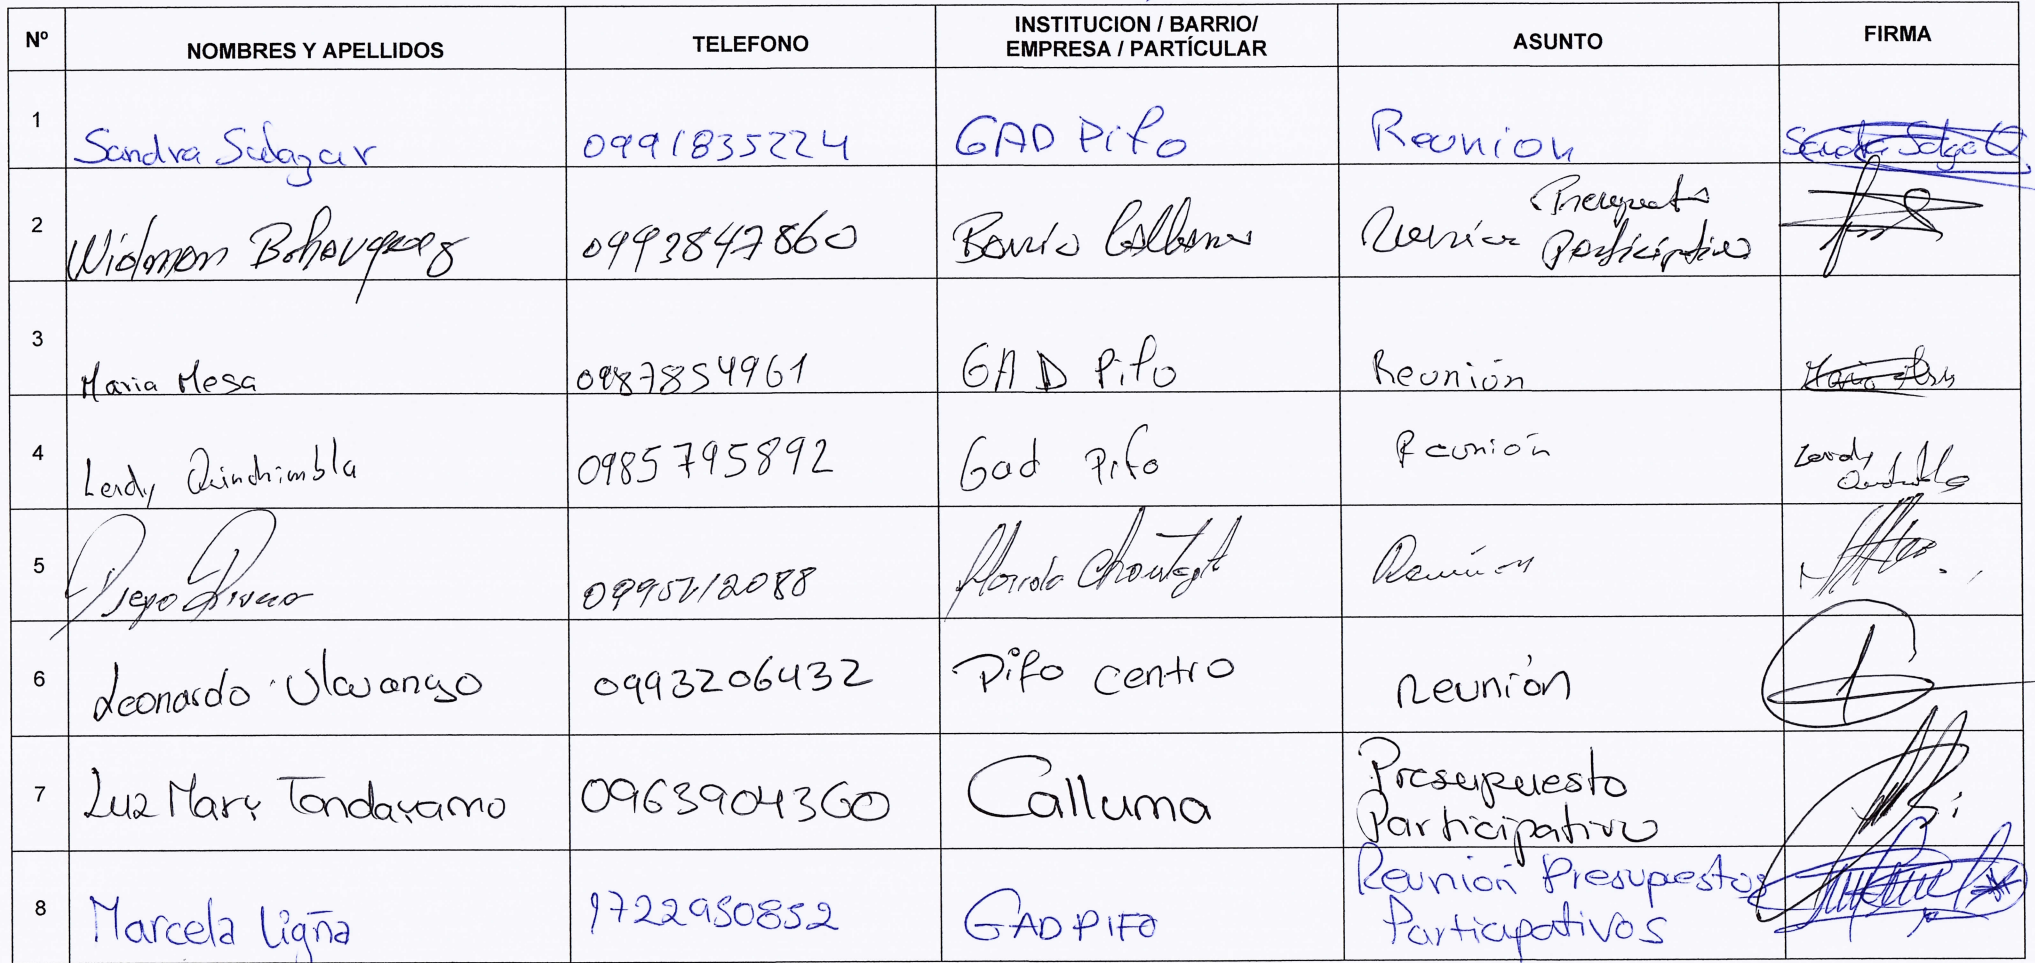 Nº NOMBRES Y APELLIDOS TELEFONO INSTITUCION / BARRIO/ EMPRESA / PARTÍCULAR ASUNTO FIRMA
1 Sandra Salazar 0991835224 GAD Pifo Reunion
2 Widman Bohorquez 0993847860 Barrio Presupuesto Participativo
3 Maria Mesa 0987854961 GAD Pifo Reunión
4 Lendy Quinchimbla 0985795892 Gad Pifo Reunión
5 Diego Rivera Reunion
6 Leonardo 0993206432 Pifo centro reunión
7 Luz Mary Tandayamo 0963904360 Calluma Presupuesto Participativo
8 Marcela Ligña 1722950852 GAD PIFO Reunión Presupestos Participativos